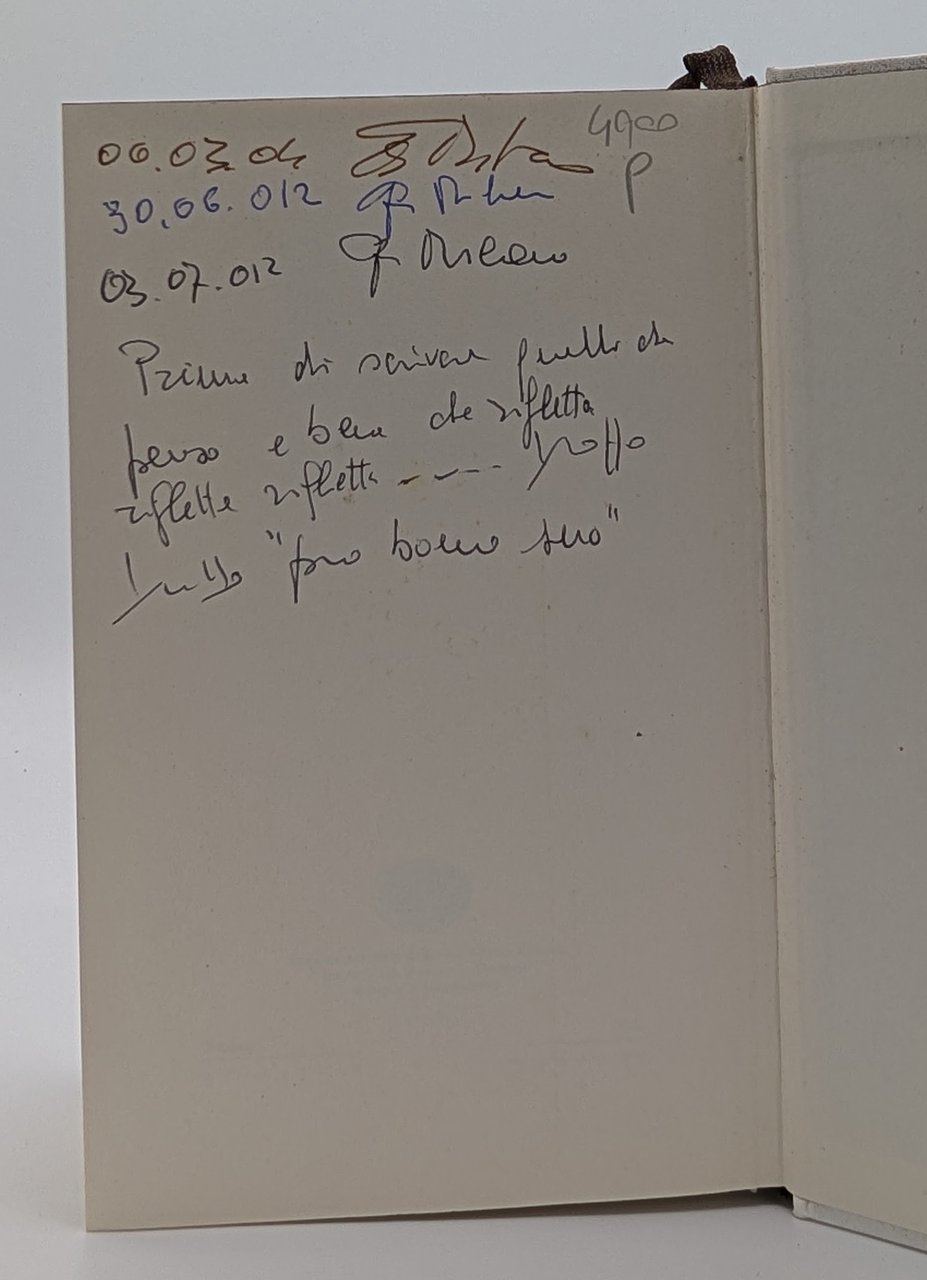 06.03.04
4900
P
30.06.012
03.07.012 Milano
Prima di scrivere quello che
penso e bene che rifletta
riflette rifletta ----- troppo
tutto "pro bono suo"